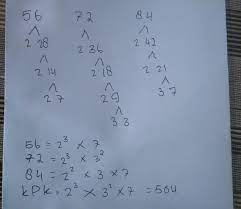 56 72 84
2 28 2 36 2 42
2 14 2 18 2 21
2 7 2 9 3 7
3 3
56 = 2³ × 7
72 = 2³ × 3²
84 = 2² × 3 × 7
KPK = 2³ × 3² × 7 = 504